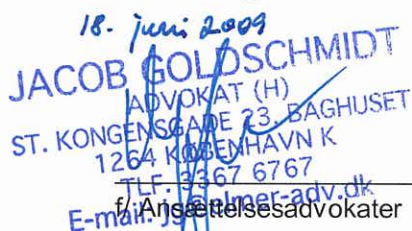 18. juni 2009
JACOB GOLDSCHMIDT
ADVOKAT (H)
ST. KONGENSGADE 23, BAGHUSET
1264 KØBENHAVN K
TLF. 3367 6767
E-mail: jg@elmer-adv.dk
f/ Ansættelsesadvokater